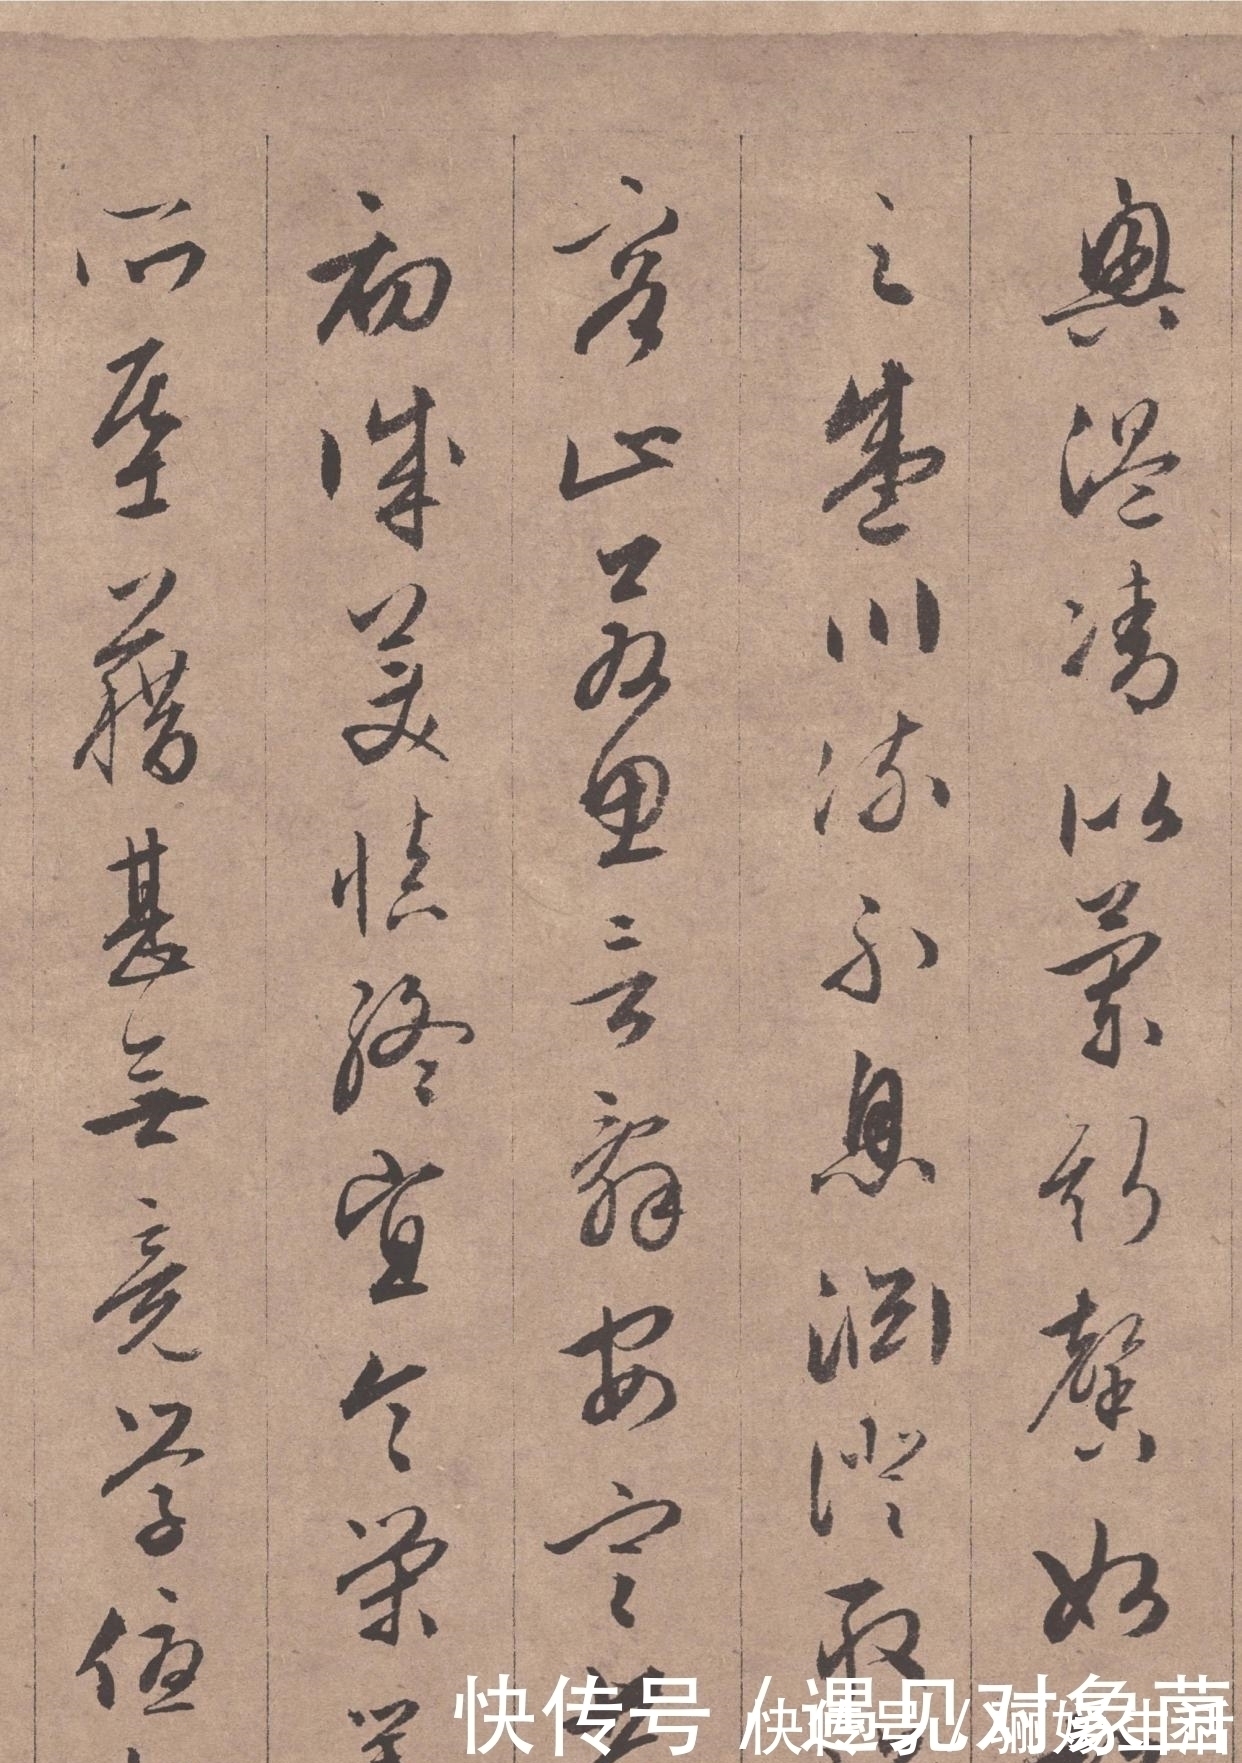 興溫凊似蘭斯馨如
之盛川流不息淵澄取
容止若思言辭安定
初誠美慎終宜令榮
所基藉甚無竟學優
快传号 / 遇见对象菌